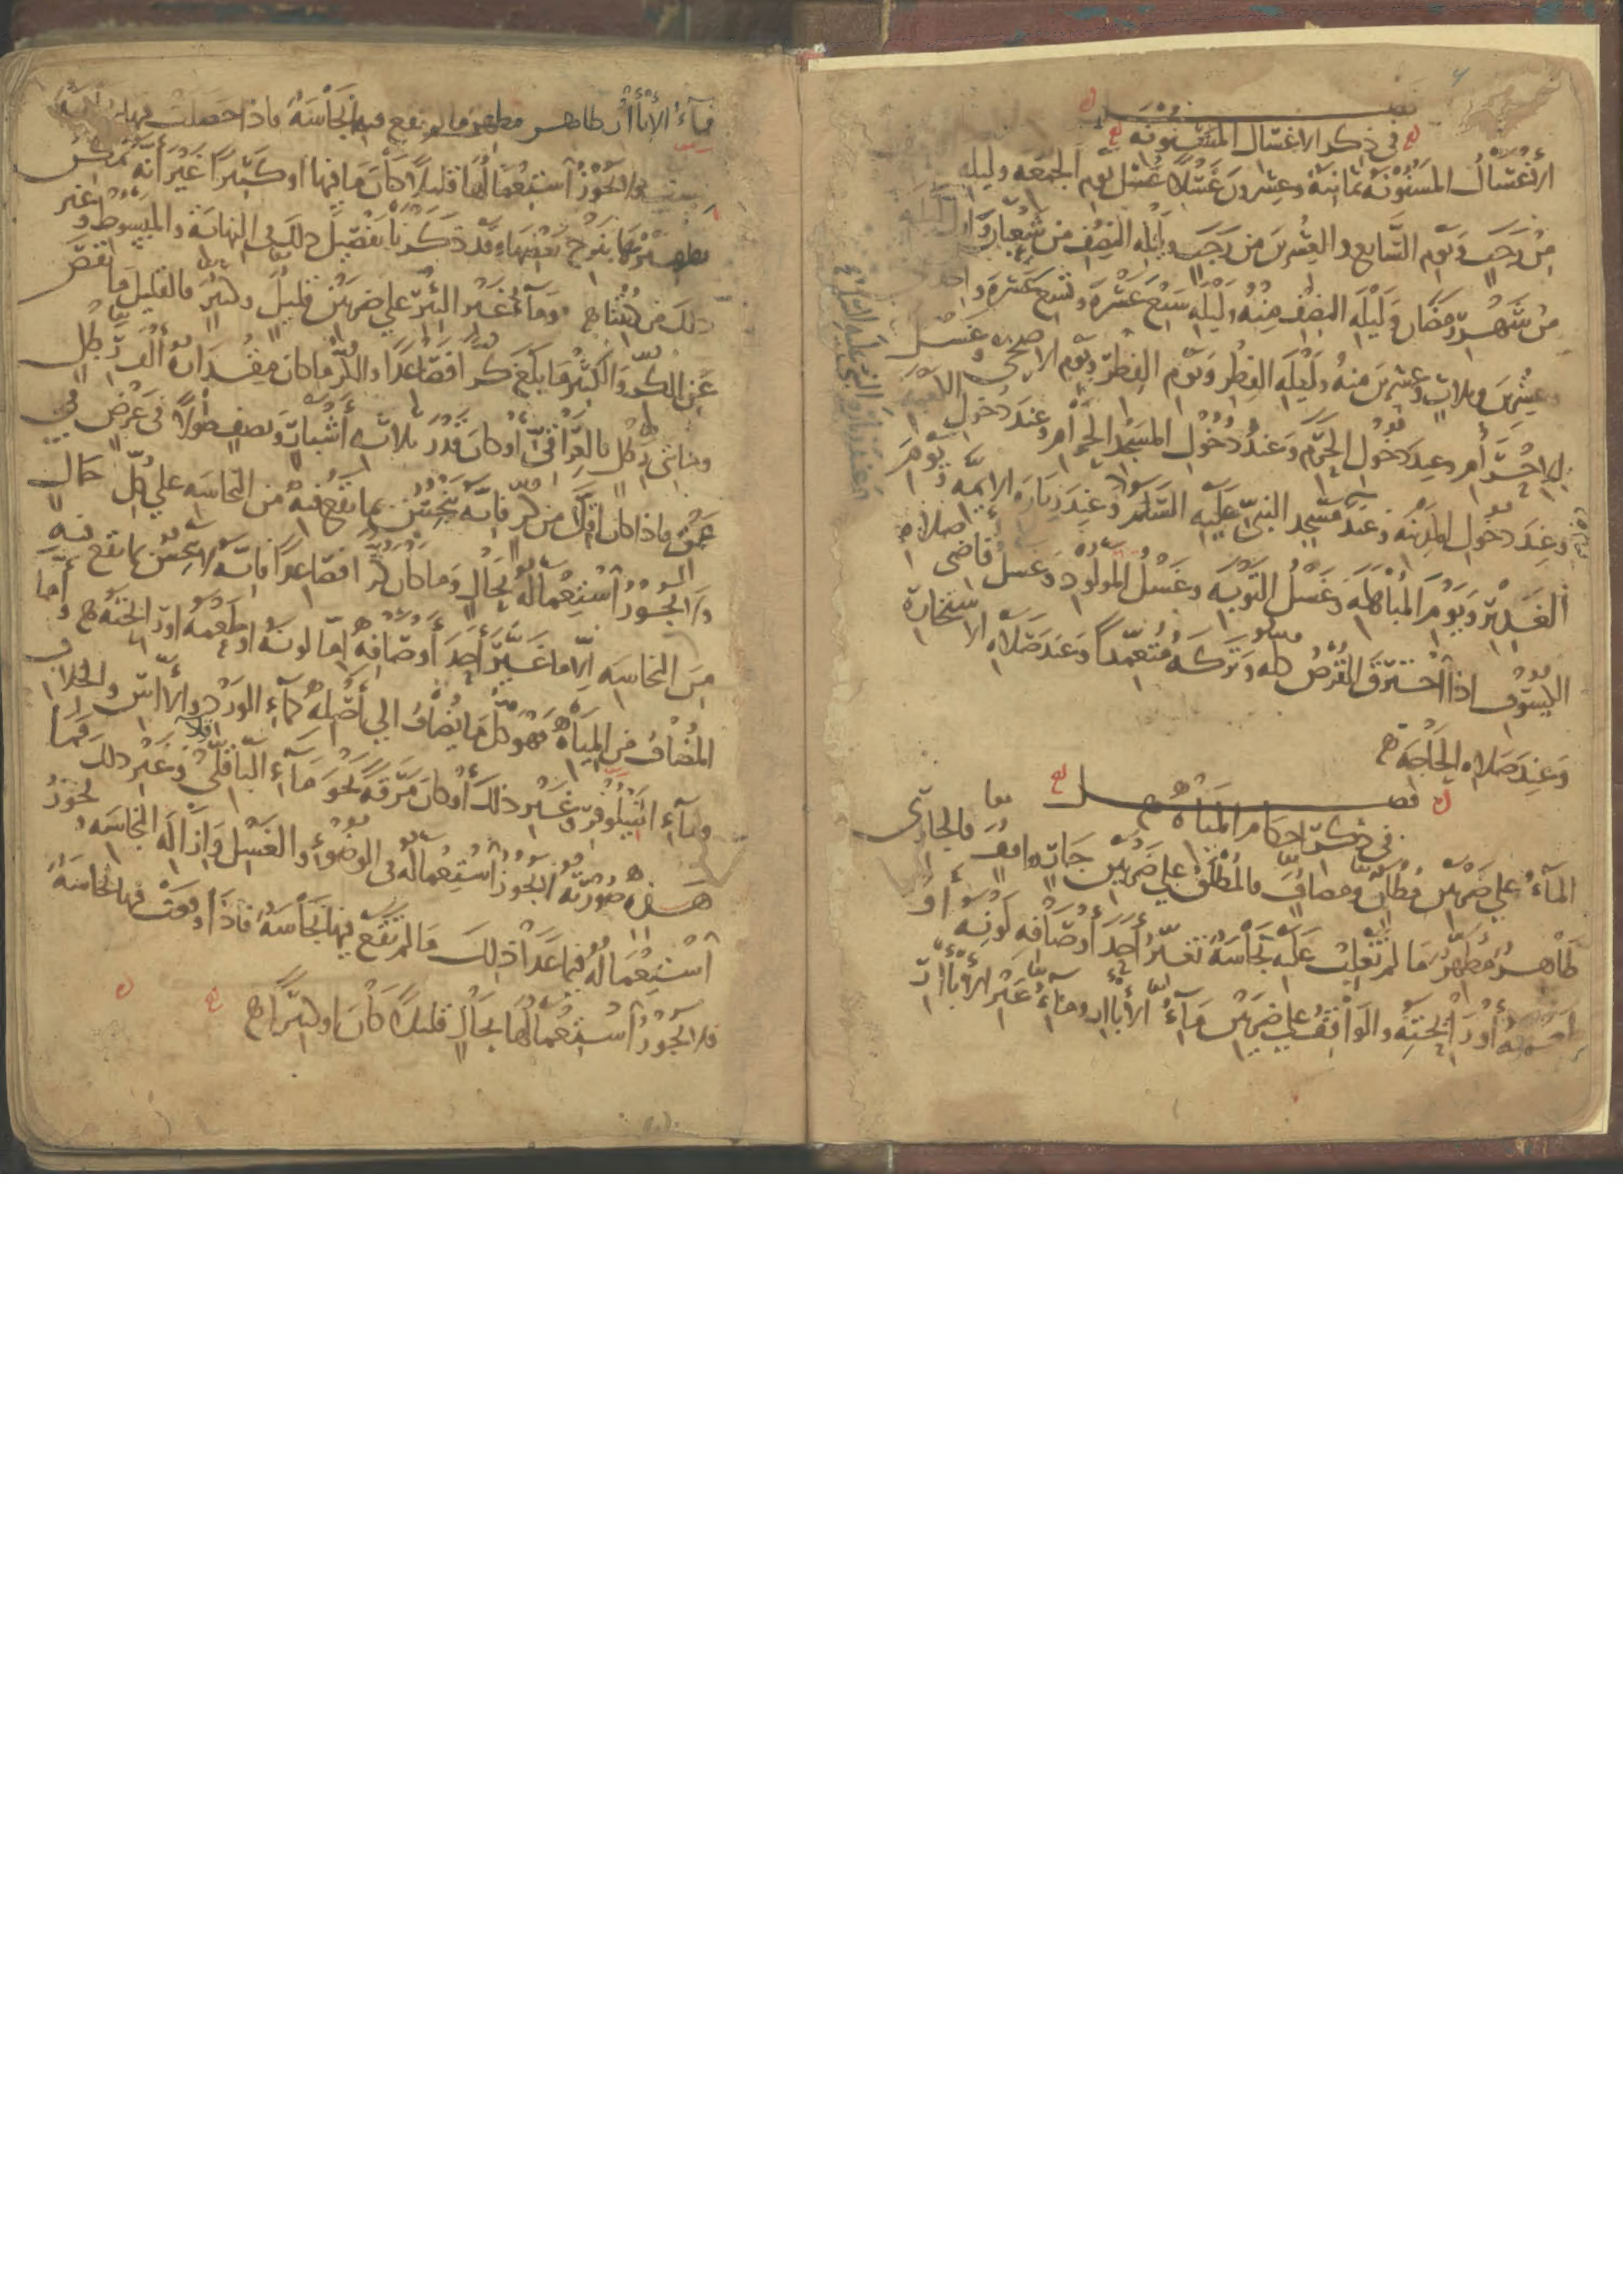 فصل
في ذكر الاغسال المسنونه
الأغسال المسنونة ثمانية وعشرون غسلا غسل يوم الجمعه وليله
من رجب ويوم السابع والعشرين من رجب وليله النصف من شعبان و
من شهر رمضان وليله النصف منه وليله سبع عشرة وتسع عشرة و
عشرين وثلاث وعشرين منه وليله الفطر ويوم الفطر ويوم الاضحى وغسل
الاحرام وعند دخول الحرم وعند دخول المسجد الحرام وعند دخول الكعبه
وعند دخول المدينه وعند مسجد النبي عليه السلام وعند زيارة الايمه ويوم
الغدير ويوم المباهله وغسل التوبه وغسل المولود وغسل قاضي صلاة
الكسوف اذا احترق القرص كله وتركه متعمدا وعند صلاه الاستخارة
وعند صلاه الحاجة
فصل
في ذكر احكام المياه
الماء على ضربين مطلق ومضاف فالمطلق على ضربين جار وواقف فالجارى
طاهر مطهر ما لم تغلب عليه نجاسة تغير أحد أوصافه لونه أو
أو رائحته والواقف على ضربين ماء الأبار وماء غير الأبار
فماء الأبار طاهر مطهر ما لم يقع فيه نجاسة فاذا حصلت فيها
فلا يجوز استعمالها قليلا كان ما فيها او كثيرا غير أنه يمكن
تطهيرها بنزح بعضها وقد ذكرنا تفصيل ذلك في النهاية والمبسوط وغير
ذلك من كتبنا وماء غير البئر على ضربين قليل وكثير فالقليل ما نقص
عن الكر والكثير ما بلغ كرا فصاعدا والكر ما كان مقداره ألف رطل
ومائتي رطل بالعراقي أو كان قدر ثلاثة أشبار ونصف طولا في عرض في
عمق فاذا كان اقل من كر فانه ينجس بما يقع فيه من النجاسه على كل حال
ولا يجوز استعماله بحال وما كان كرا فصاعدا فانه لا ينجس بما يقع فيه
من النجاسه الا ما غير أحد أوصافه إما لونه او طعمه او رائحته وأما
المضاف من المياه فهو كل ما يضاف الى أصله كماء الورد والأس والخلاف
وماء النيلوفر وغير ذلك أو كان مرقة نحو ماء الباقلى وغير ذلك فما
هذه صورته لا يجوز استعماله في الوضوء والغسل وازالة النجاسه ويجوز
استعماله فيما عدا ذلك ما لم تقع فيها نجاسة فاذا وقعت فيها نجاسة
فلا يجوز استعمالها بحال قليلا كان او كثيرا